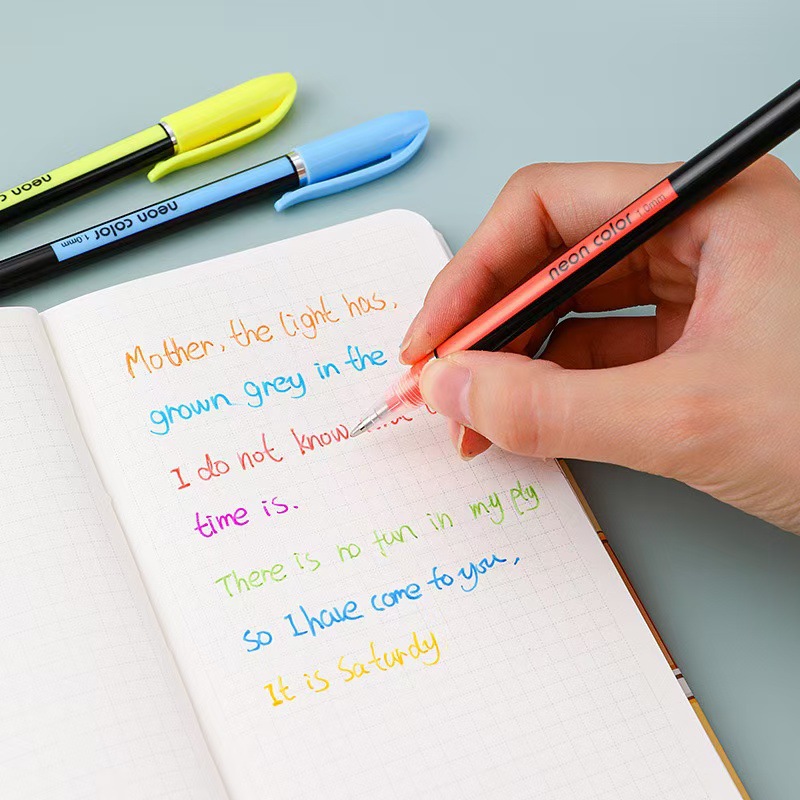 neon
neon color 1.0mm
neon color 1.0mm
Mother, the light has,
grown grey in the
I do not know
time is.
There is no fun in my ply
so I have come to you,
It is Saturdy